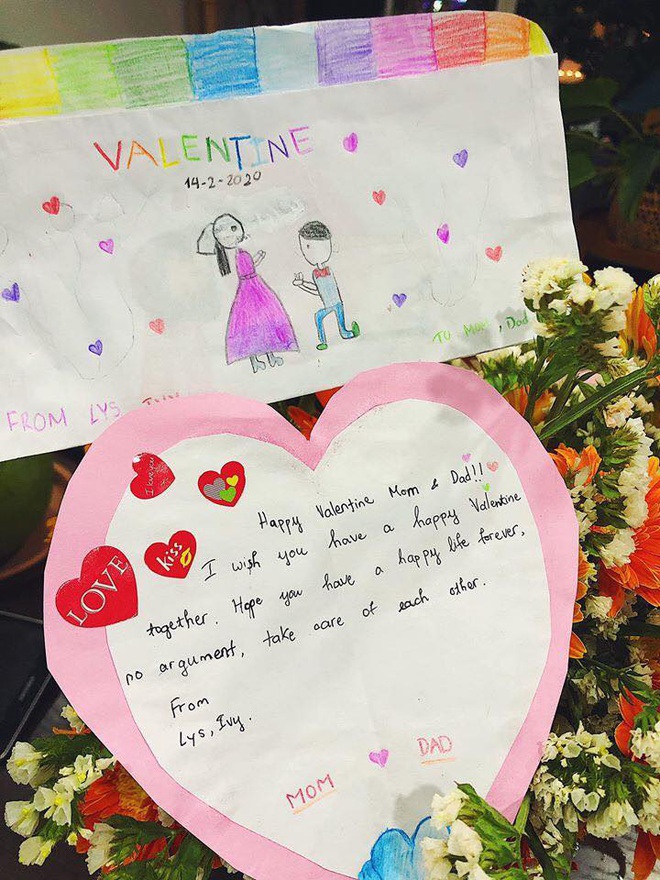 VALENTINE
14-2-2020
To Mom, Dad
FROM LYS, IVY
I love you
kiss
LOVE
Happy Valentine Mom & Dad!!
I wish you have a happy Valentine
together. Hope you have a happy life forever,
no argument, take care of each other.
From
Lys, Ivy.
MOM
DAD